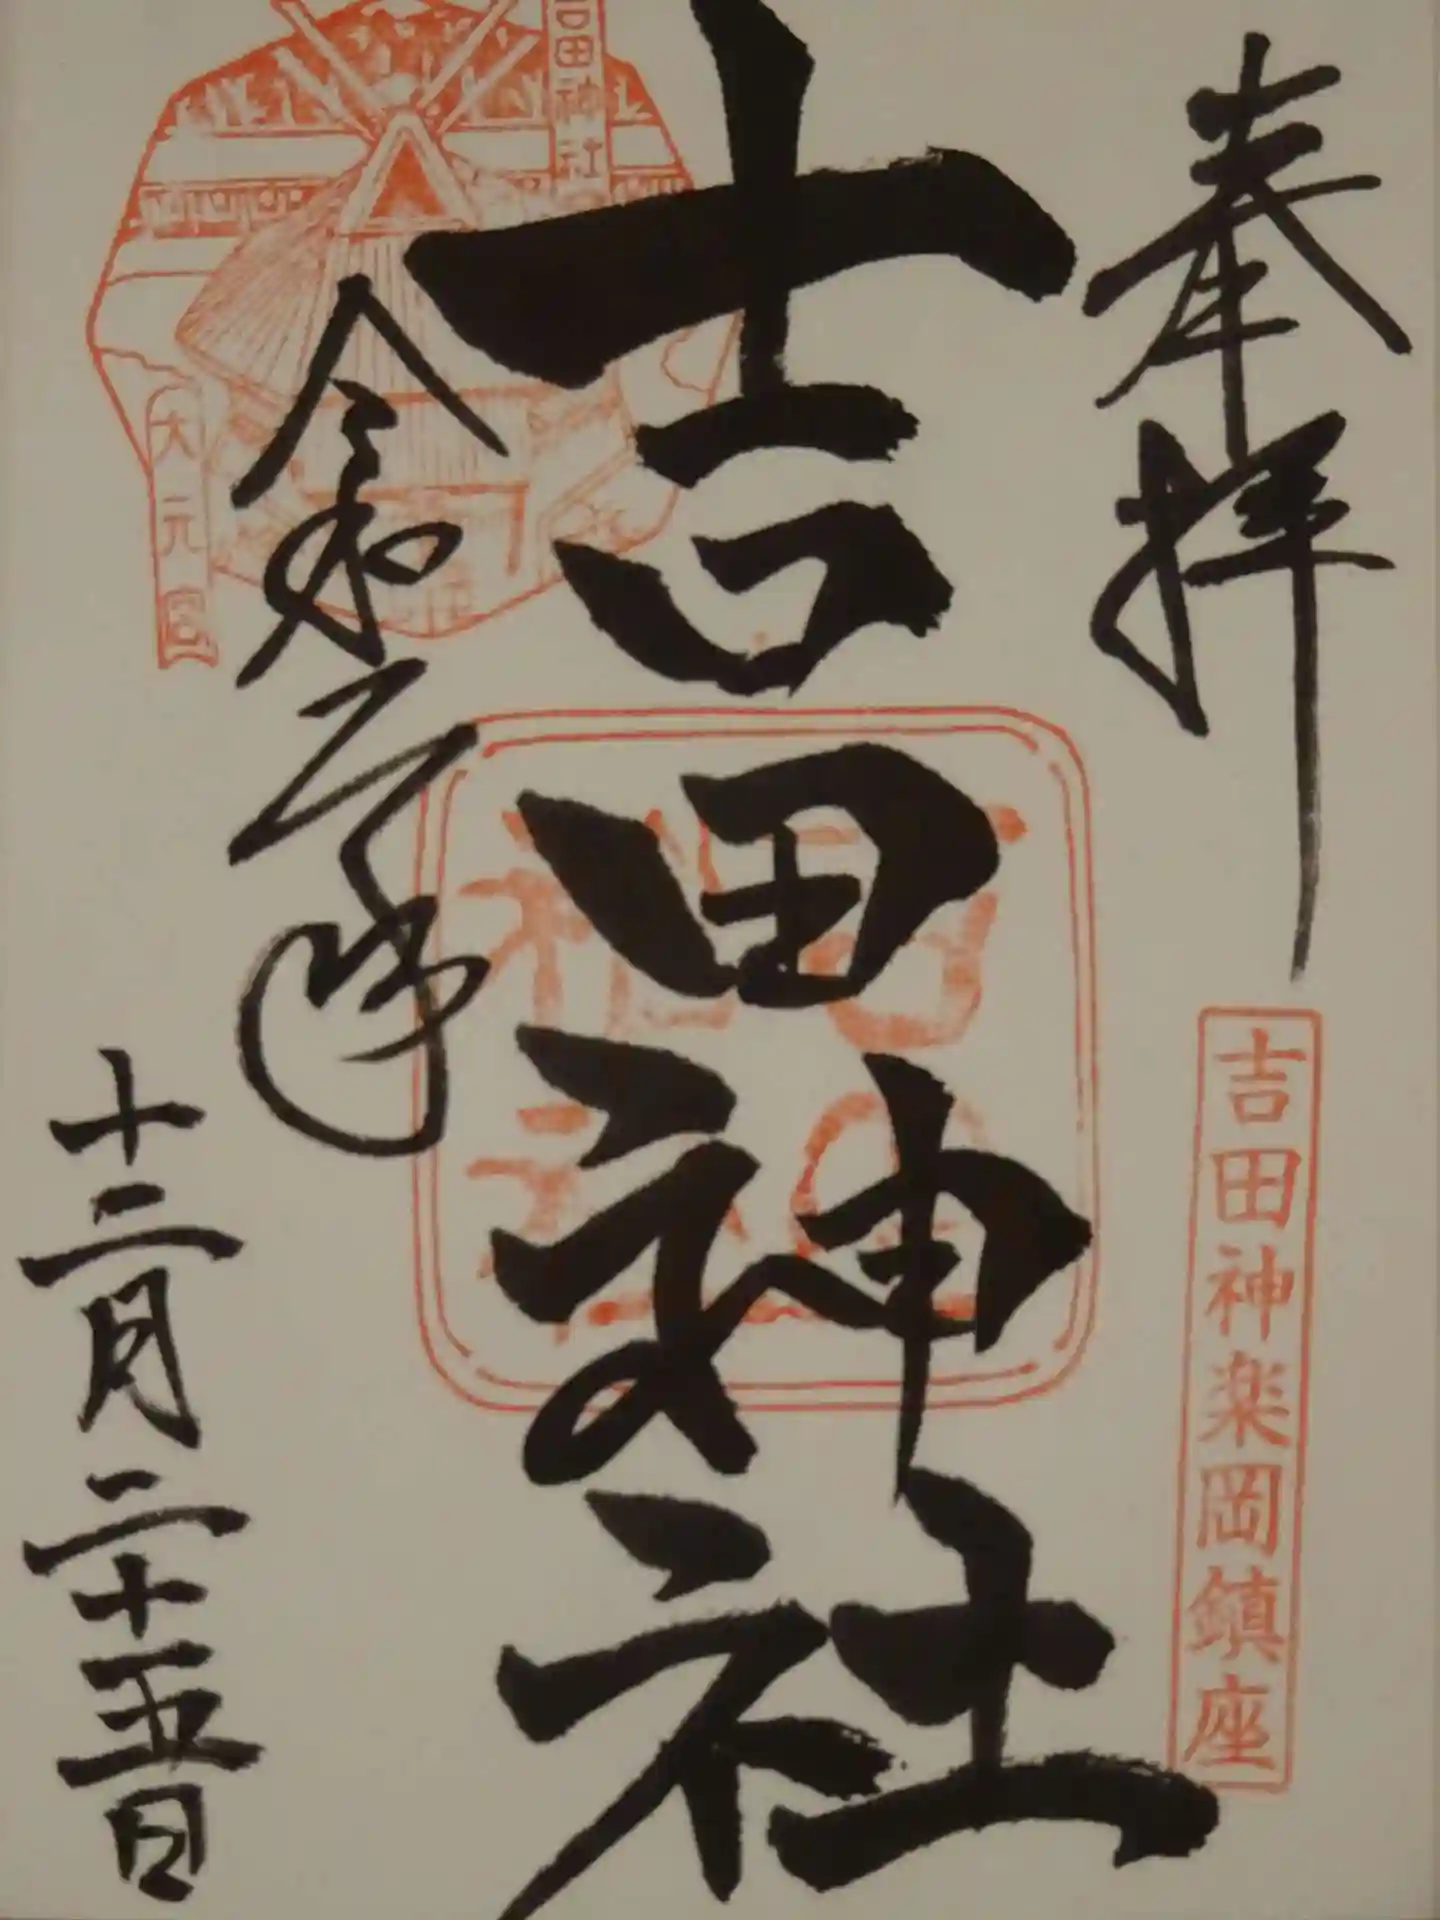 奉拝
吉田神楽岡鎮座
吉田神社
吉田神社
令和二年
大元宮
十二月二十五日